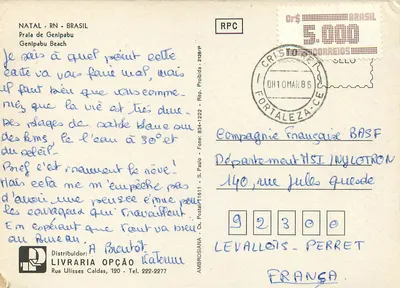 NATAL - RN - BRASIL
Praia de Genipabu
Genipabu Beach
RPC
Cr$ BRASIL
5.000
CORREIOS
SELO
CRISTO REI
10 MAR 86
FORTALEZA-CE
Je sais à quel point cette
carte va vous faire mal, mais
il faut bien que vous
que la vie est très dure
plages de sable blanc ou
des kms, l'eau à 30° et
du soleil.
Bref c'est vraiment le rêve!
Mais cela ne m'empêche pas
d'avoir une pensée émue pour
les courageux qui travaillent.
En espérant que tout va bien
au Bureau.
A Bientôt
Compagnie Française BASF
Département MSI
140, rue Jules Guesde
92300
LEVALLOIS-PERRET
FRANÇA
Distribuidor:
LIVRARIA OPÇÃO
Rua Ulisses Caldas, 120 - Tel. 222-2277
AMBROSIANA - Cx. Postal 11611 - S. Paulo - Fone: 834-1222 - Rep. Proibida